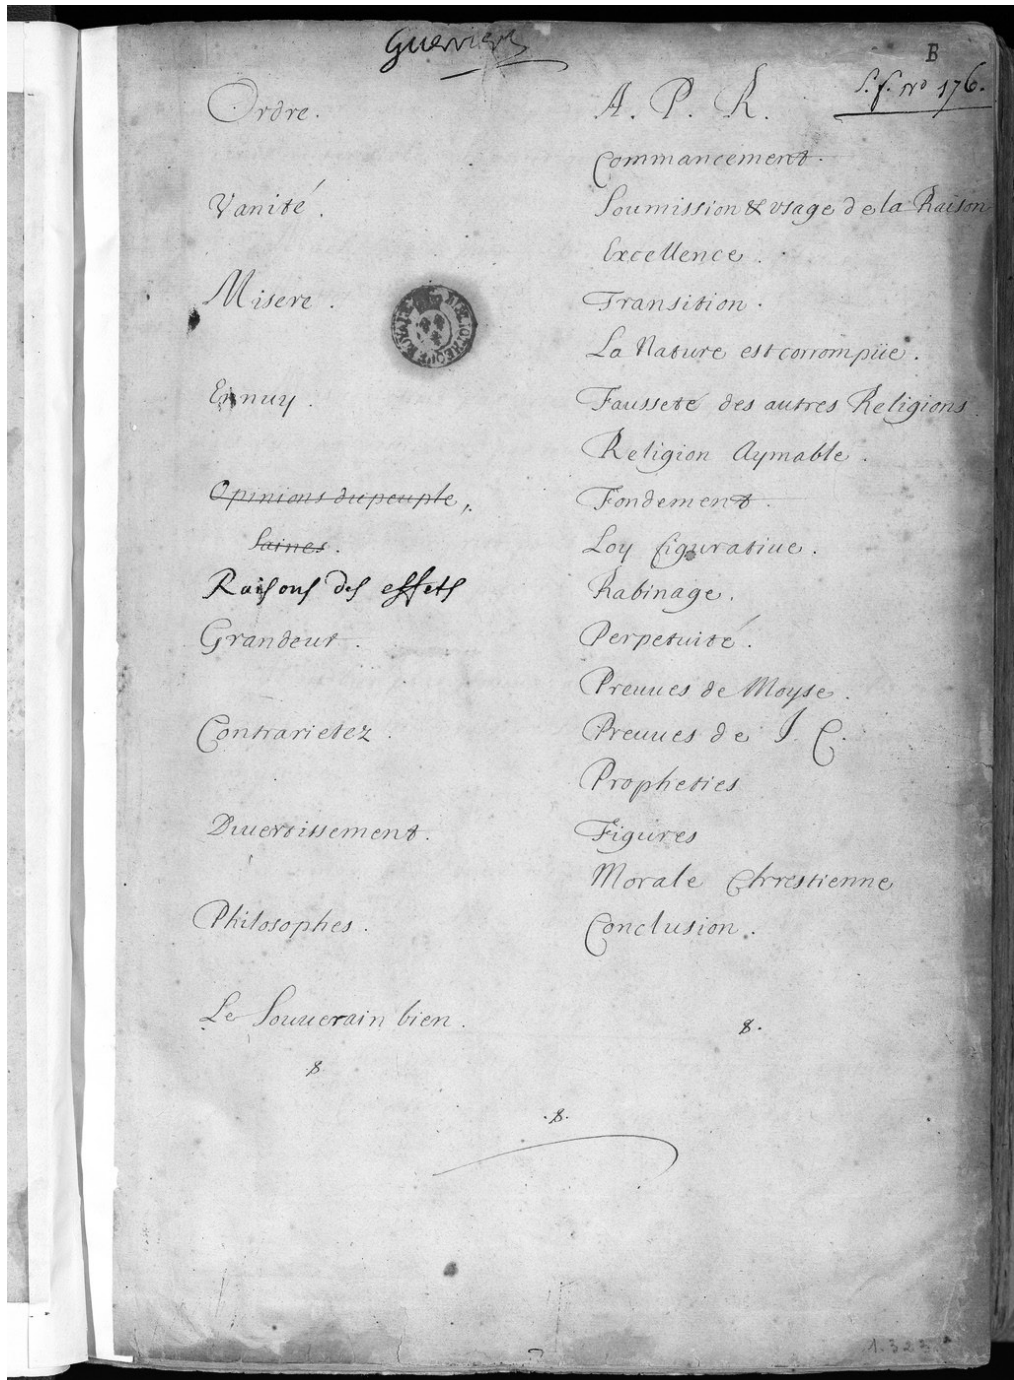 Guerrier
B
S. f. no 176.
Ordre.
Vanité.
Misere.
Ennuy.
Opinions du peuple,
Saines.
Raisons des effets
Grandeur.
Contrarietez.
Diuertissement.
Philosophes.
Le Souuerain bien.
8
A. P. R.
Commancement.
Soumission & vsage de la Raison
Excellence.
Transition.
La Nature est corrompüe.
Fausseté des autres Religions.
Religion Aymable.
Fondement.
Loy figuratiue.
Rabinage.
Perpetuité.
Preuues de Moyse.
Preuues de J. C.
Propheties
Figures
Morale Chrestienne
Conclusion.
8.
.8.
1.323